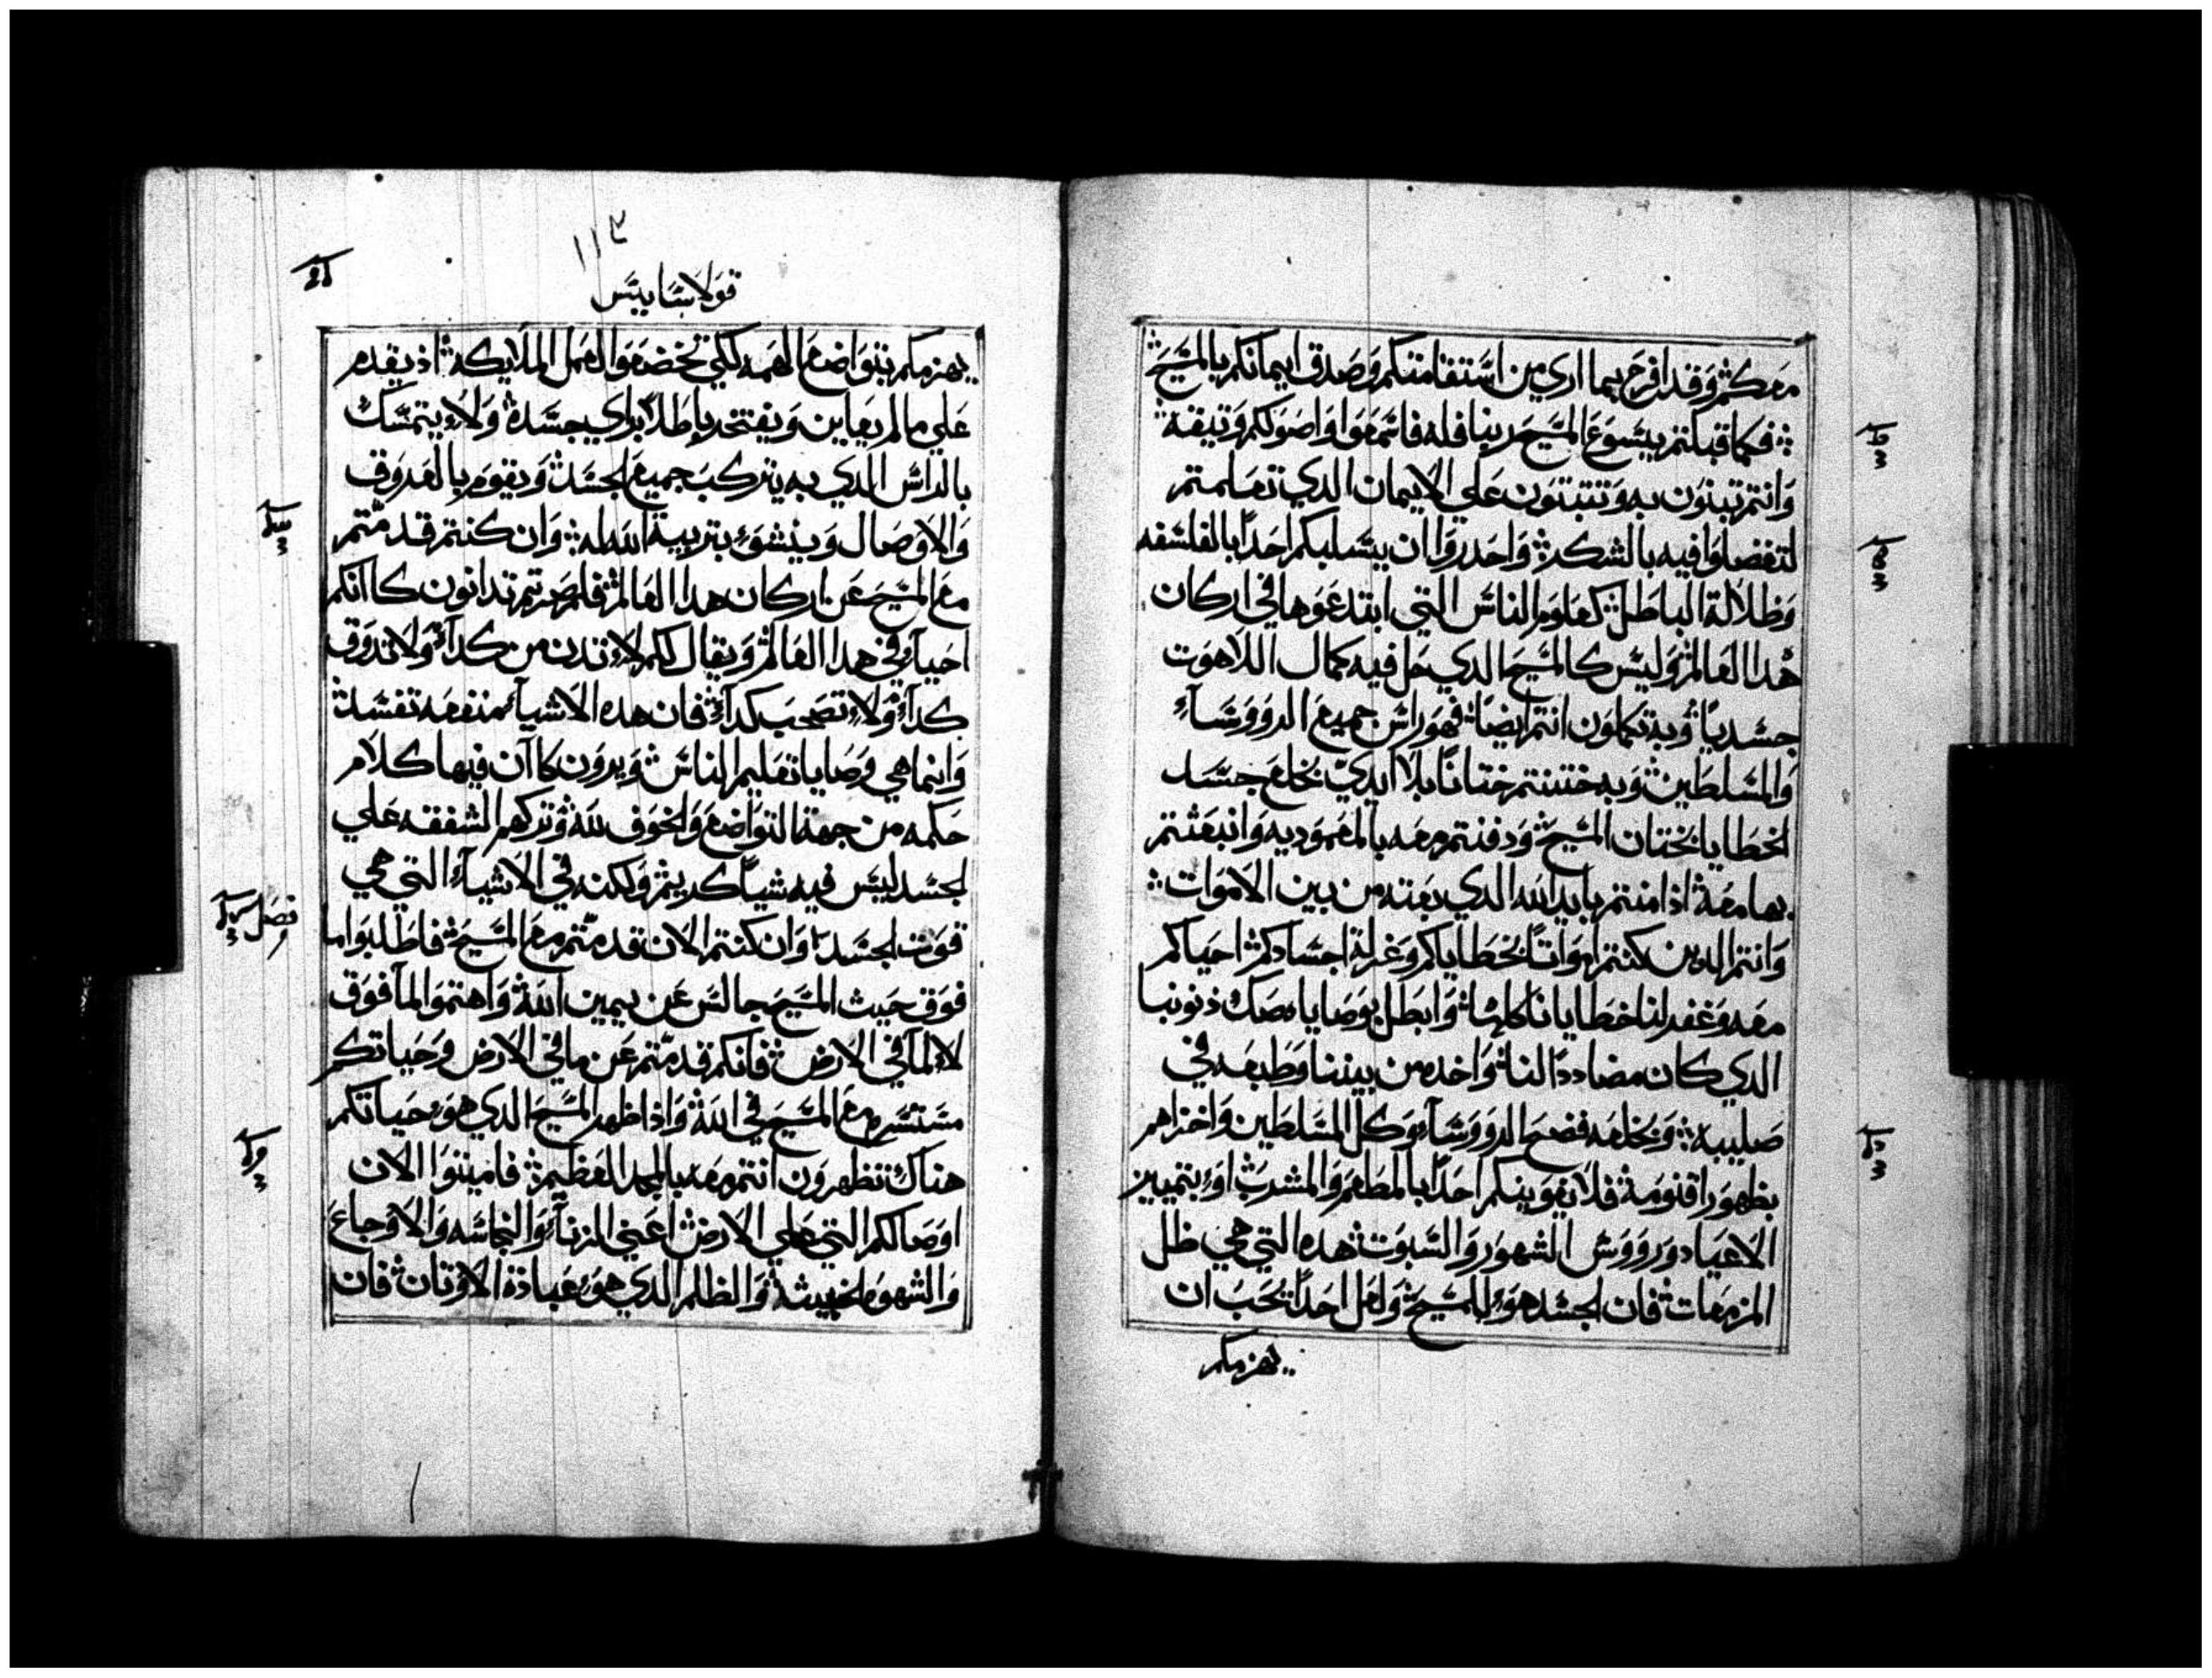 معكم وقد افرح بما اري من استقامتكم وصدق ايمانكم بالمسيح
فكما قبلتم يسوع المسيح ربنا فله فاسمعوا واصولكم وتيقه
وانتم تبنون به وتتبتون علي الايمان الدي تعلمتم
لتفضلوا فيه بالشكر واحدروا ان يسلبكم احدا بالفلسفه
وظلالة الباطل كعلوم الناس التي ابتدعوها في اركان
هدا العالم وليس كالمسيح الدي حل فيه كمال اللاهوت
جسديا وبه تكملون انتم ايضا فهو راس جميع الرووساء
والسلطين وبه ختنتم ختانا بلا ايدي بخلع جسد
الخطايا بختان المسيح ودفنتم معه بالمعموديه وانبعثتم
بها معه اذ امنتم بايد الله الدي بعته من بين الاموات
وانتم الدين كنتم امواتا بخطاياكم وغرلة اجسادكم احياكم
معه وغفر لنا خطايانا كلها وابطل بوصاياه صك ذنوبنا
الدي كان مضاددا لنا واخده من بيننا وطبعه في
صليبه وبخلعه فضح الرووساء وكل السلطين واخزاهم
بظهور اقنومه فلا يغوينكم احدا بالمطعم والمشرب او بتمييز
الاعياد ورووس الشهور والسبوت هده التي هي ظل
المزمعات فان الجسد هو المسيح ولعل احدا يحب ان
يهزمكم
١١٣
قولاسايس
يهزمكم بتواضع الهمه لكي تخضعوا لعمل الملايكه اذ يقدم
علي ما لم يعاين ويفتخر باطلا براي جسده ولا يتمسك
بالراس الدي به يتركب جميع الجسد ويقوم بالعروق
والاوصال وينشو بتربية الله له وان كنتم قد متم
مع المسيح عن اركان هدا العالم فلم صرتم تدانون كاانكم
احياء في هدا العالم ويقال لكم لا تدن من كدا ولا تدوق
كداء ولا تصحب كداء فان هده الاشياء منفعه تفسد
وانما هي وصايا تعليم الناس ويرون كاان فيها كلام
حكمه من جهة التواضع والخوف لله وتركهم الشفقه علي
الجسد ليس فيه شيا كريم ولكنه في الاشياء التي هي
قوت الجسد وان كنتم الان قد متم مع المسيح فاطلبوا ما
فوق حيث المسيح جالس عن يمين الله واهتموا لما فوق
لا لما في الارض فانكم قد متم عن ما في الارض وحياتكم
مستتره مع المسيح في الله واذا ظهر المسيح الدي هو حياتكم
هناك تظهرون انتم معه بالمجد العظيم فاميتوا الان
اوصالكم التي علي الارض اعني الزناء والنجاسه والاوجاع
والشهوه الخبيثه والظلم الدي هو عبادة الاوتان فان
فصل